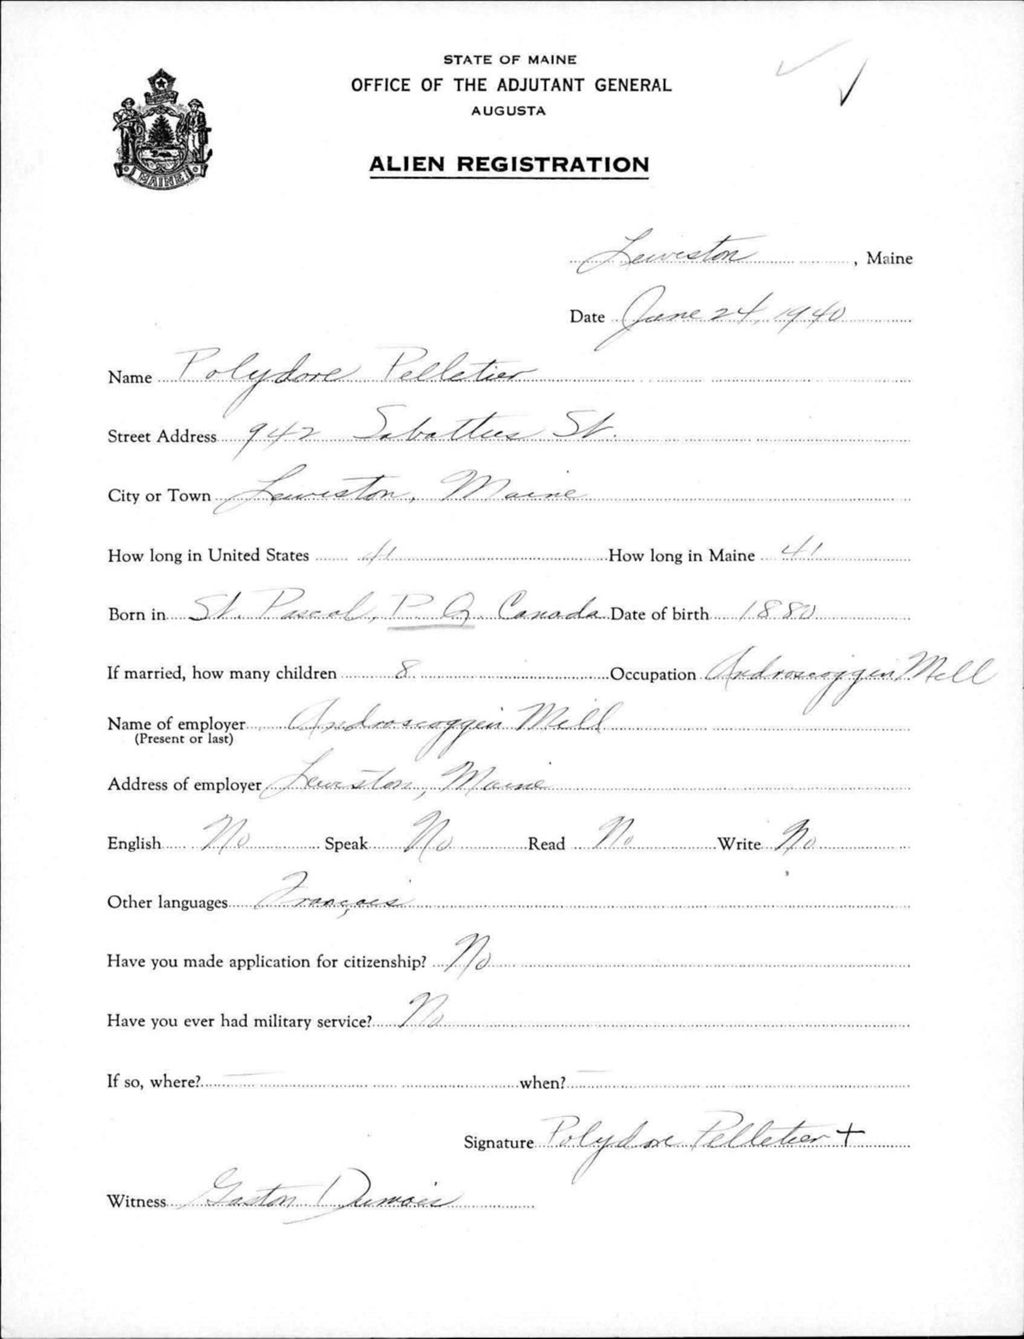 STATE OF MAINE
OFFICE OF THE ADJUTANT GENERAL
AUGUSTA
ALIEN REGISTRATION
MAINE
Lewiston, Maine
Date June 24, 1940
Name Polydore Pelletier
Street Address 942 Sabattus St.
City or Town Lewiston, Maine
How long in United States 41 How long in Maine 41
Born in St. Pascal, P. Q. Canada Date of birth 1880
If married, how many children 8 Occupation Androscoggin Mill
Name of employer Androscoggin Mill
(Present or last)
Address of employer Lewiston, Maine
English No Speak No Read No Write No
Other languages Français
Have you made application for citizenship? No
Have you ever had military service? No
If so, where? — when? —
Signature Polydore Pelletier +
Witness Gaston Dumais